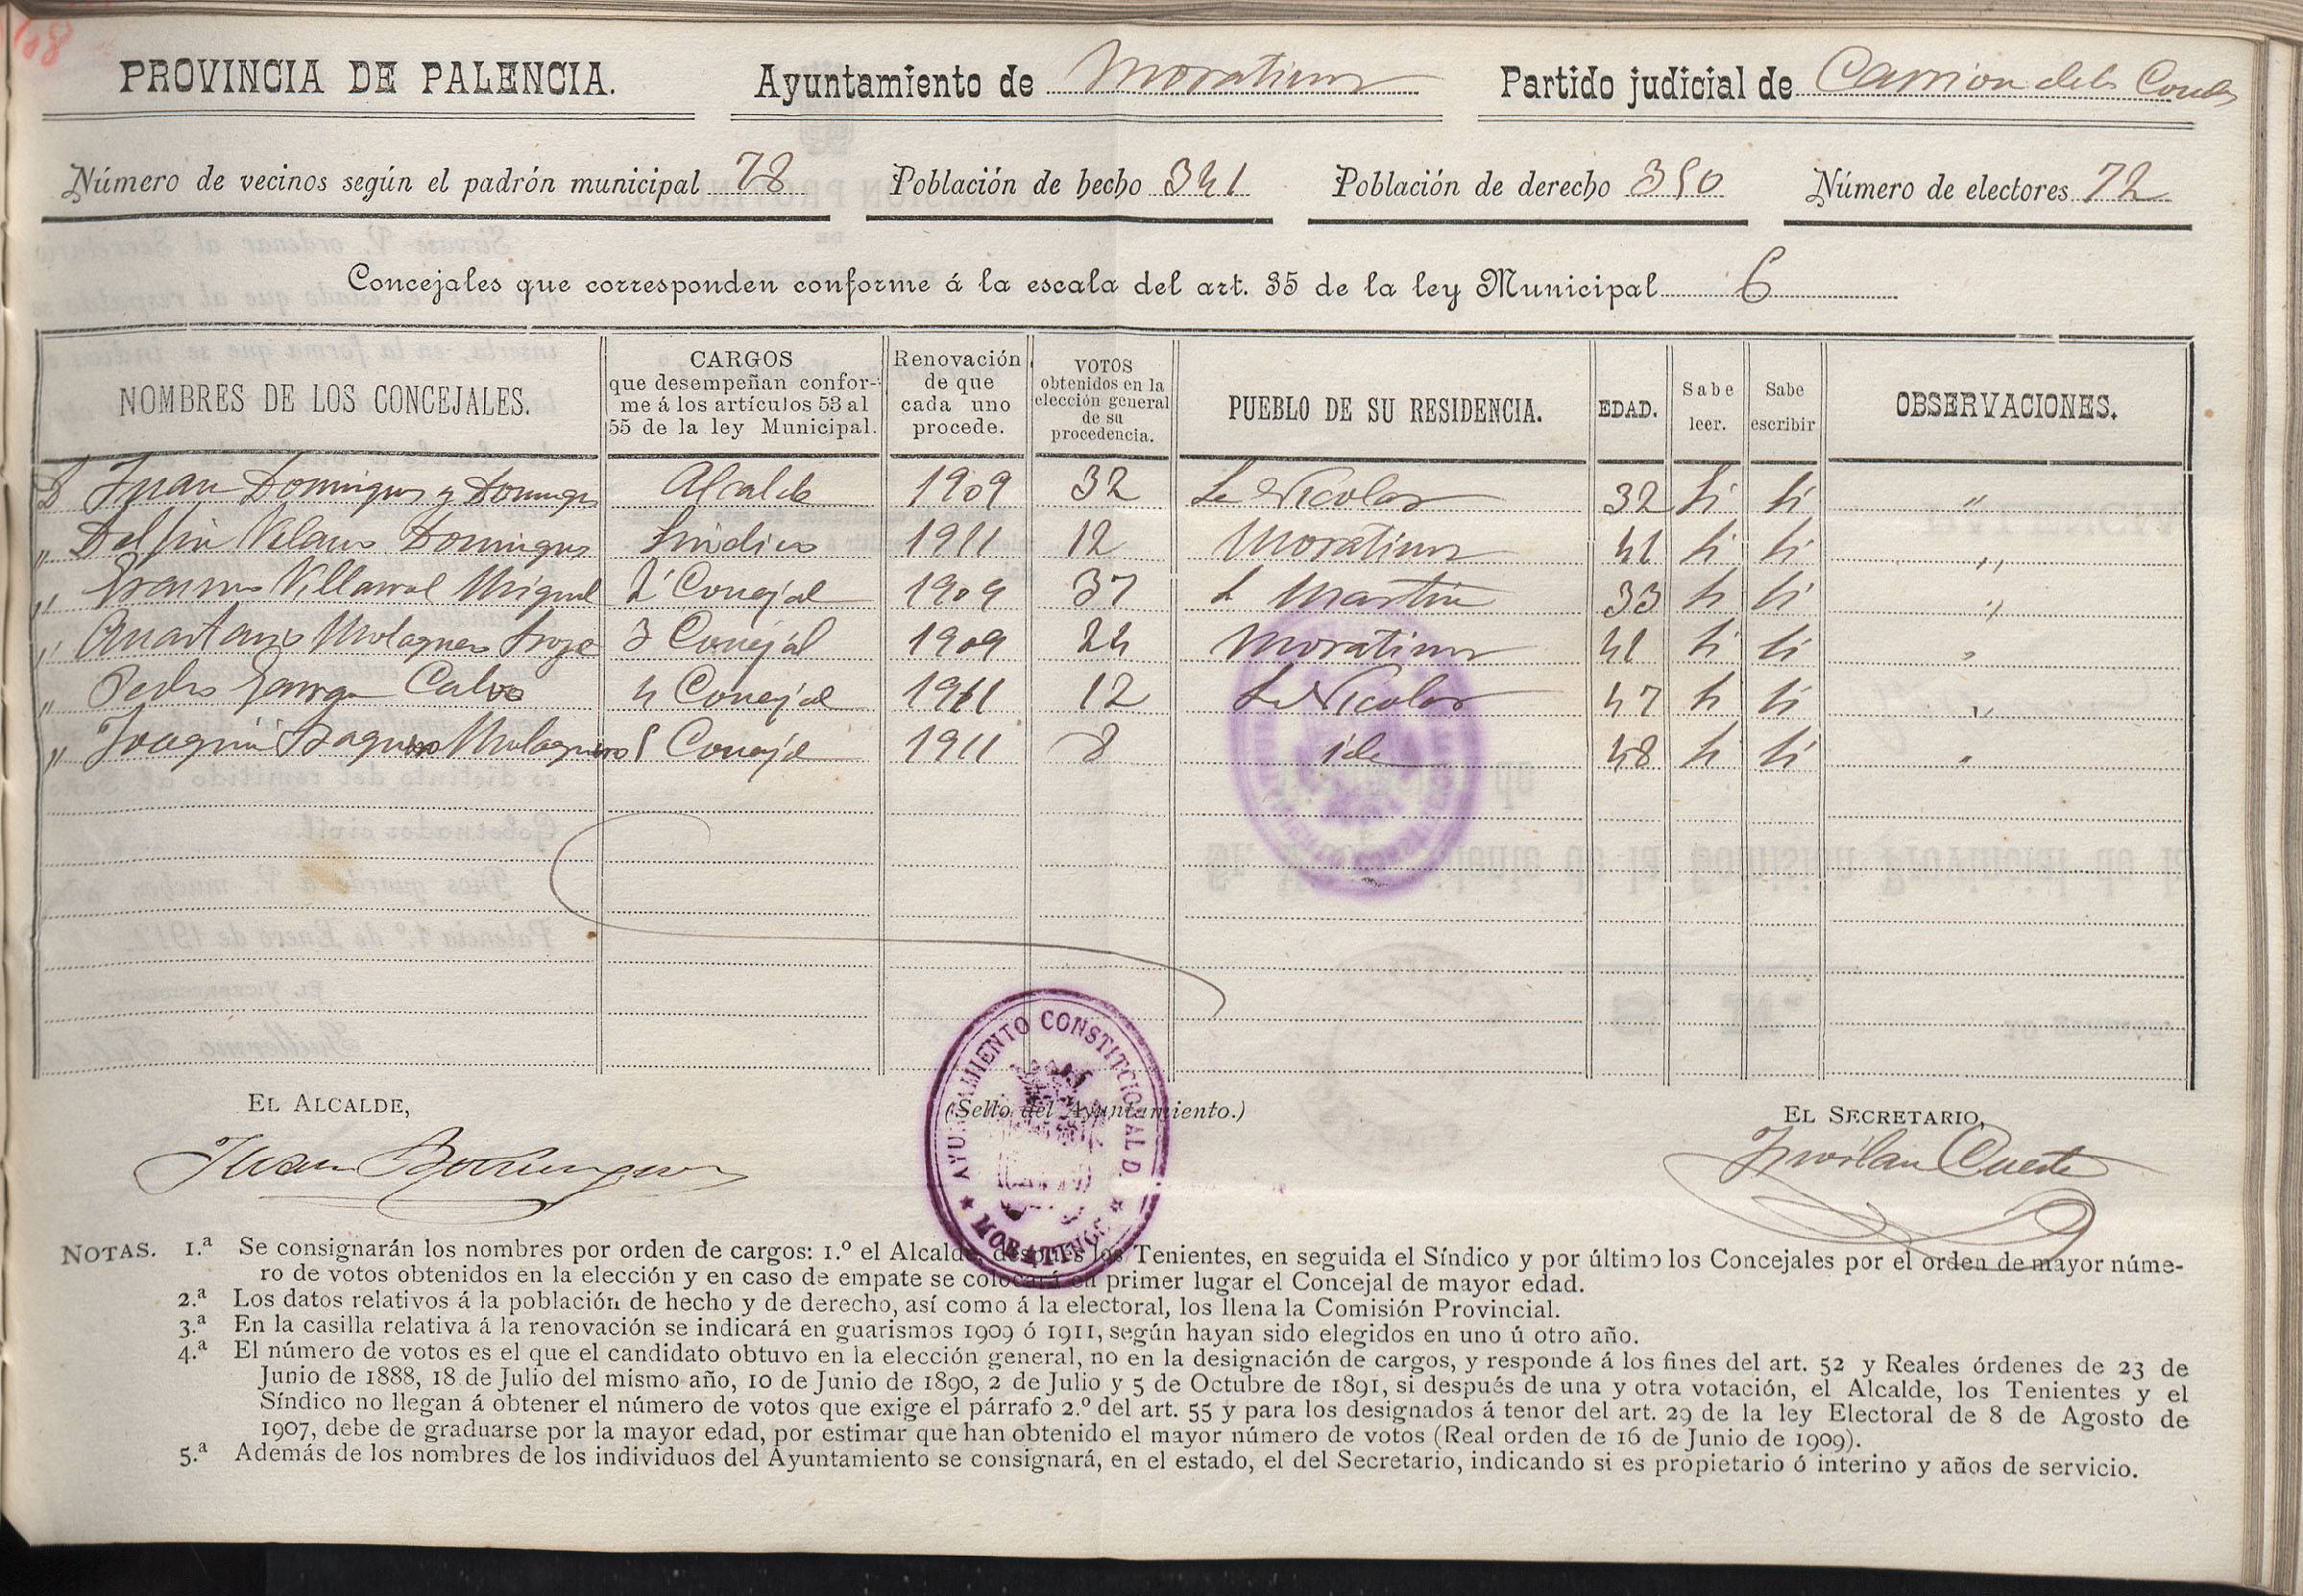 PROVINCIA DE PALENCIA. Ayuntamiento de Moratinos Partido judicial de Carrion de los Condes
Número de vecinos según el padrón municipal 78 Población de hecho 341 Población de derecho 350 Número de electores 72
Concejales que corresponden conforme á la escala del art. 35 de la ley Municipal 6
NOMBRES DE LOS CONCEJALES. CARGOS que desempeñan conforme á los artículos 53 al 55 de la ley Municipal. Renovación de que cada uno procede. VOTOS obtenidos en la elección general de su procedencia. PUEBLO DE SU RESIDENCIA. EDAD. Sabe leer. Sabe escribir OBSERVACIONES.
D Juan Dominguez y Dominguez Alcalde 1909 32 S. Nicolas 32 Si Si "
" Delfin Velasco Dominguez Sindico 1911 12 Moratinos 41 Si Si "
" Villarroel Miguel 2º Concejal 1909 37 S. Martin 33 Si Si "
" Anastasio 3 Concejal 1909 24 Moratinos 41 Si Si "
" Pedro Calvo 4 Concejal 1911 12 S. Nicolas 47 Si Si "
" Joaquin 5 Concejal 1911 8 idem 48 Si Si "
EL ALCALDE, (Sello del Ayuntamiento.) EL SECRETARIO,
Juan Dominguez Froilan Cuesta
AYUNTAMIENTO CONSTITUCIONAL D.
★ MORATINOS ★
NOTAS. 1.ª Se consignarán los nombres por orden de cargos: 1.º el Alcalde, después los Tenientes, en seguida el Síndico y por último los Concejales por el orden de mayor núme-
ro de votos obtenidos en la elección y en caso de empate se colocará en primer lugar el Concejal de mayor edad.
2.ª Los datos relativos á la población de hecho y de derecho, así como á la electoral, los llena la Comisión Provincial.
3.ª En la casilla relativa á la renovación se indicará en guarismos 1909 ó 1911, según hayan sido elegidos en uno ú otro año.
4.ª El número de votos es el que el candidato obtuvo en la elección general, no en la designación de cargos, y responde á los fines del art. 52 y Reales órdenes de 23 de
Junio de 1888, 18 de Julio del mismo año, 10 de Junio de 1890, 2 de Julio y 5 de Octubre de 1891, si después de una y otra votación, el Alcalde, los Tenientes y el
Síndico no llegan á obtener el número de votos que exige el párrafo 2.º del art. 55 y para los designados á tenor del art. 29 de la ley Electoral de 8 de Agosto de
1907, debe de graduarse por la mayor edad, por estimar que han obtenido el mayor número de votos (Real orden de 16 de Junio de 1909).
5.ª Además de los nombres de los individuos del Ayuntamiento se consignará, en el estado, el del Secretario, indicando si es propietario ó interino y años de servicio.